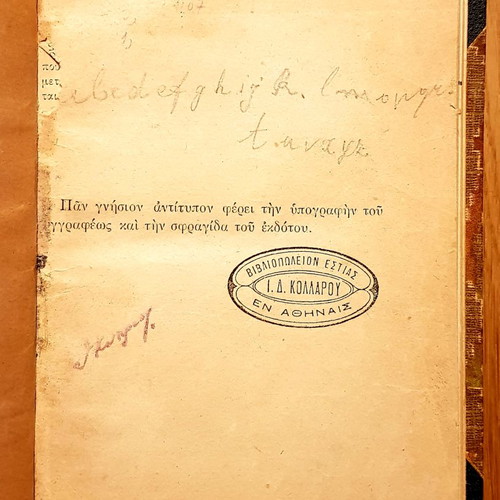 που
μετ
ται
abcdefghijk. lmnopqr.
t.uvxyz
Πᾶν γνήσιον ἀντίτυπον φέρει τὴν ὑπογραφὴν τοῦ
γγραφέως καὶ τὴν σφραγίδα τοῦ ἐκδότου.
ΒΙΒΛΙΟΠΩΛΕΙΟΝ ΕΣΤΙΑΣ
Ι. Δ. ΚΟΛΛΑΡΟΥ
ΕΝ ΑΘΗΝΑΙΣ